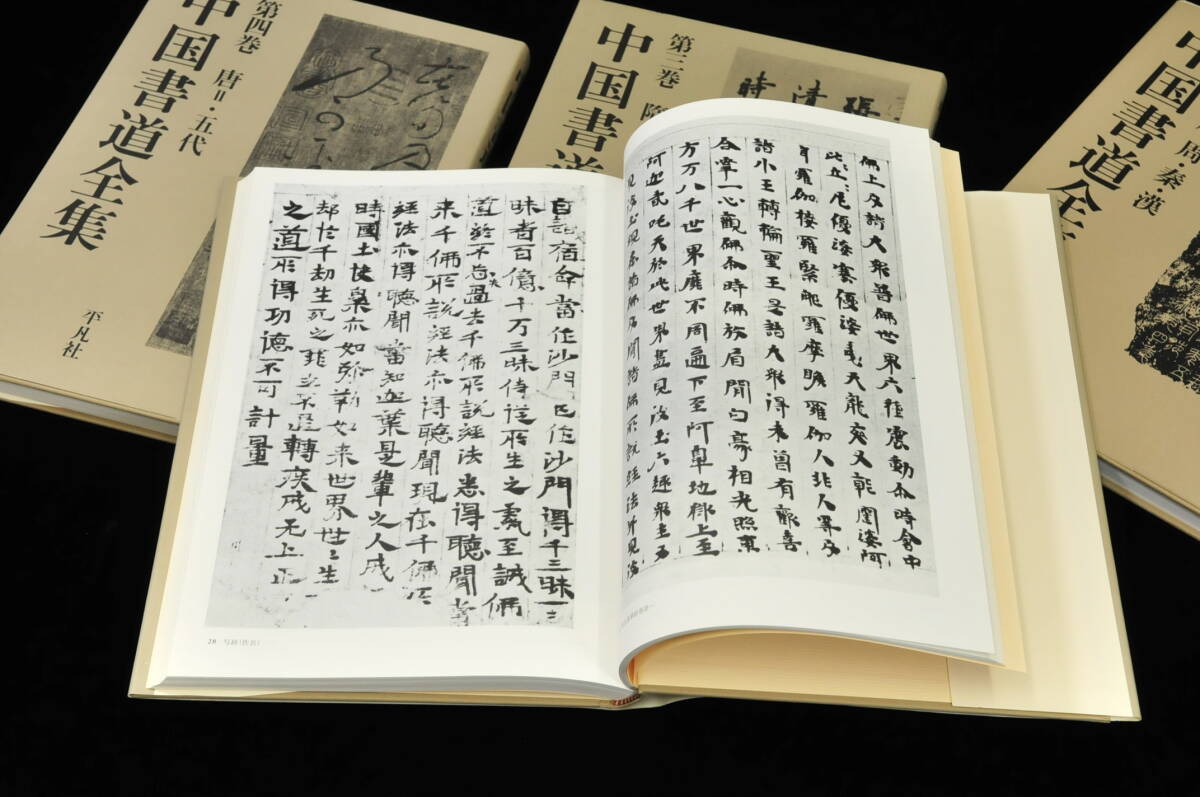 第四巻 唐Ⅱ・五代
中国書道全集
平凡社
第三巻 隋
中国書道
周・秦・漢
中国書道全
佛上及諸大衆普佛世界六種震動尒時會中
比丘比丘尼優婆塞優婆夷天龍夜叉乾闥婆阿
脩羅伽樓羅緊那羅摩睺羅伽人非人等及
諸小王轉輪聖王是諸大衆得未曾有歡喜
合掌一心觀佛尒時佛放眉間白豪相光照東
方万八千世界靡不周遍下至阿鼻地獄上至
阿迦貳吒天於此世界盡見彼土六趣衆生又
見彼土現在諸佛及聞諸佛所說經法并見彼
自識宿命當作沙門已作沙門得千三昧三
昧者百億千万三昧侍從所生之處至誠佛
道終不忘過去千佛所說經法悉得聽聞當
来千佛所說經法亦得聽聞現在千佛所
經法亦得聽聞當知迦葉是輩之人成
時國土快樂亦如弥勒如来世界世ミ生
却於千劫生死之
轉疾成无上正
之道所得功德不可計量
28 写経